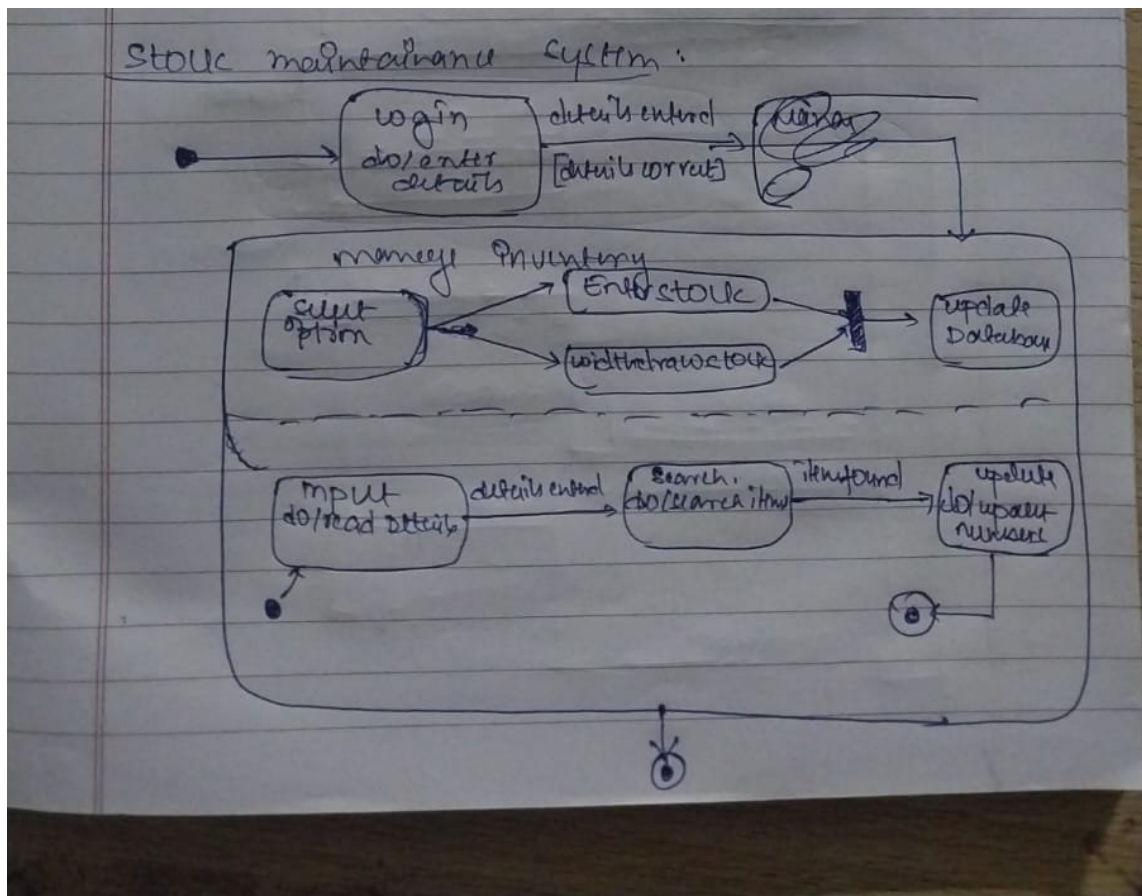 Stouk maintainance system :
login
do/enter
details
details enterd
[details correct]
manage inventory
select
option
Enter stouk
widthdraw stouk
update
Database
input
do/read Details
details enterd
search.
do/search item
item found
update
do/update
numbers